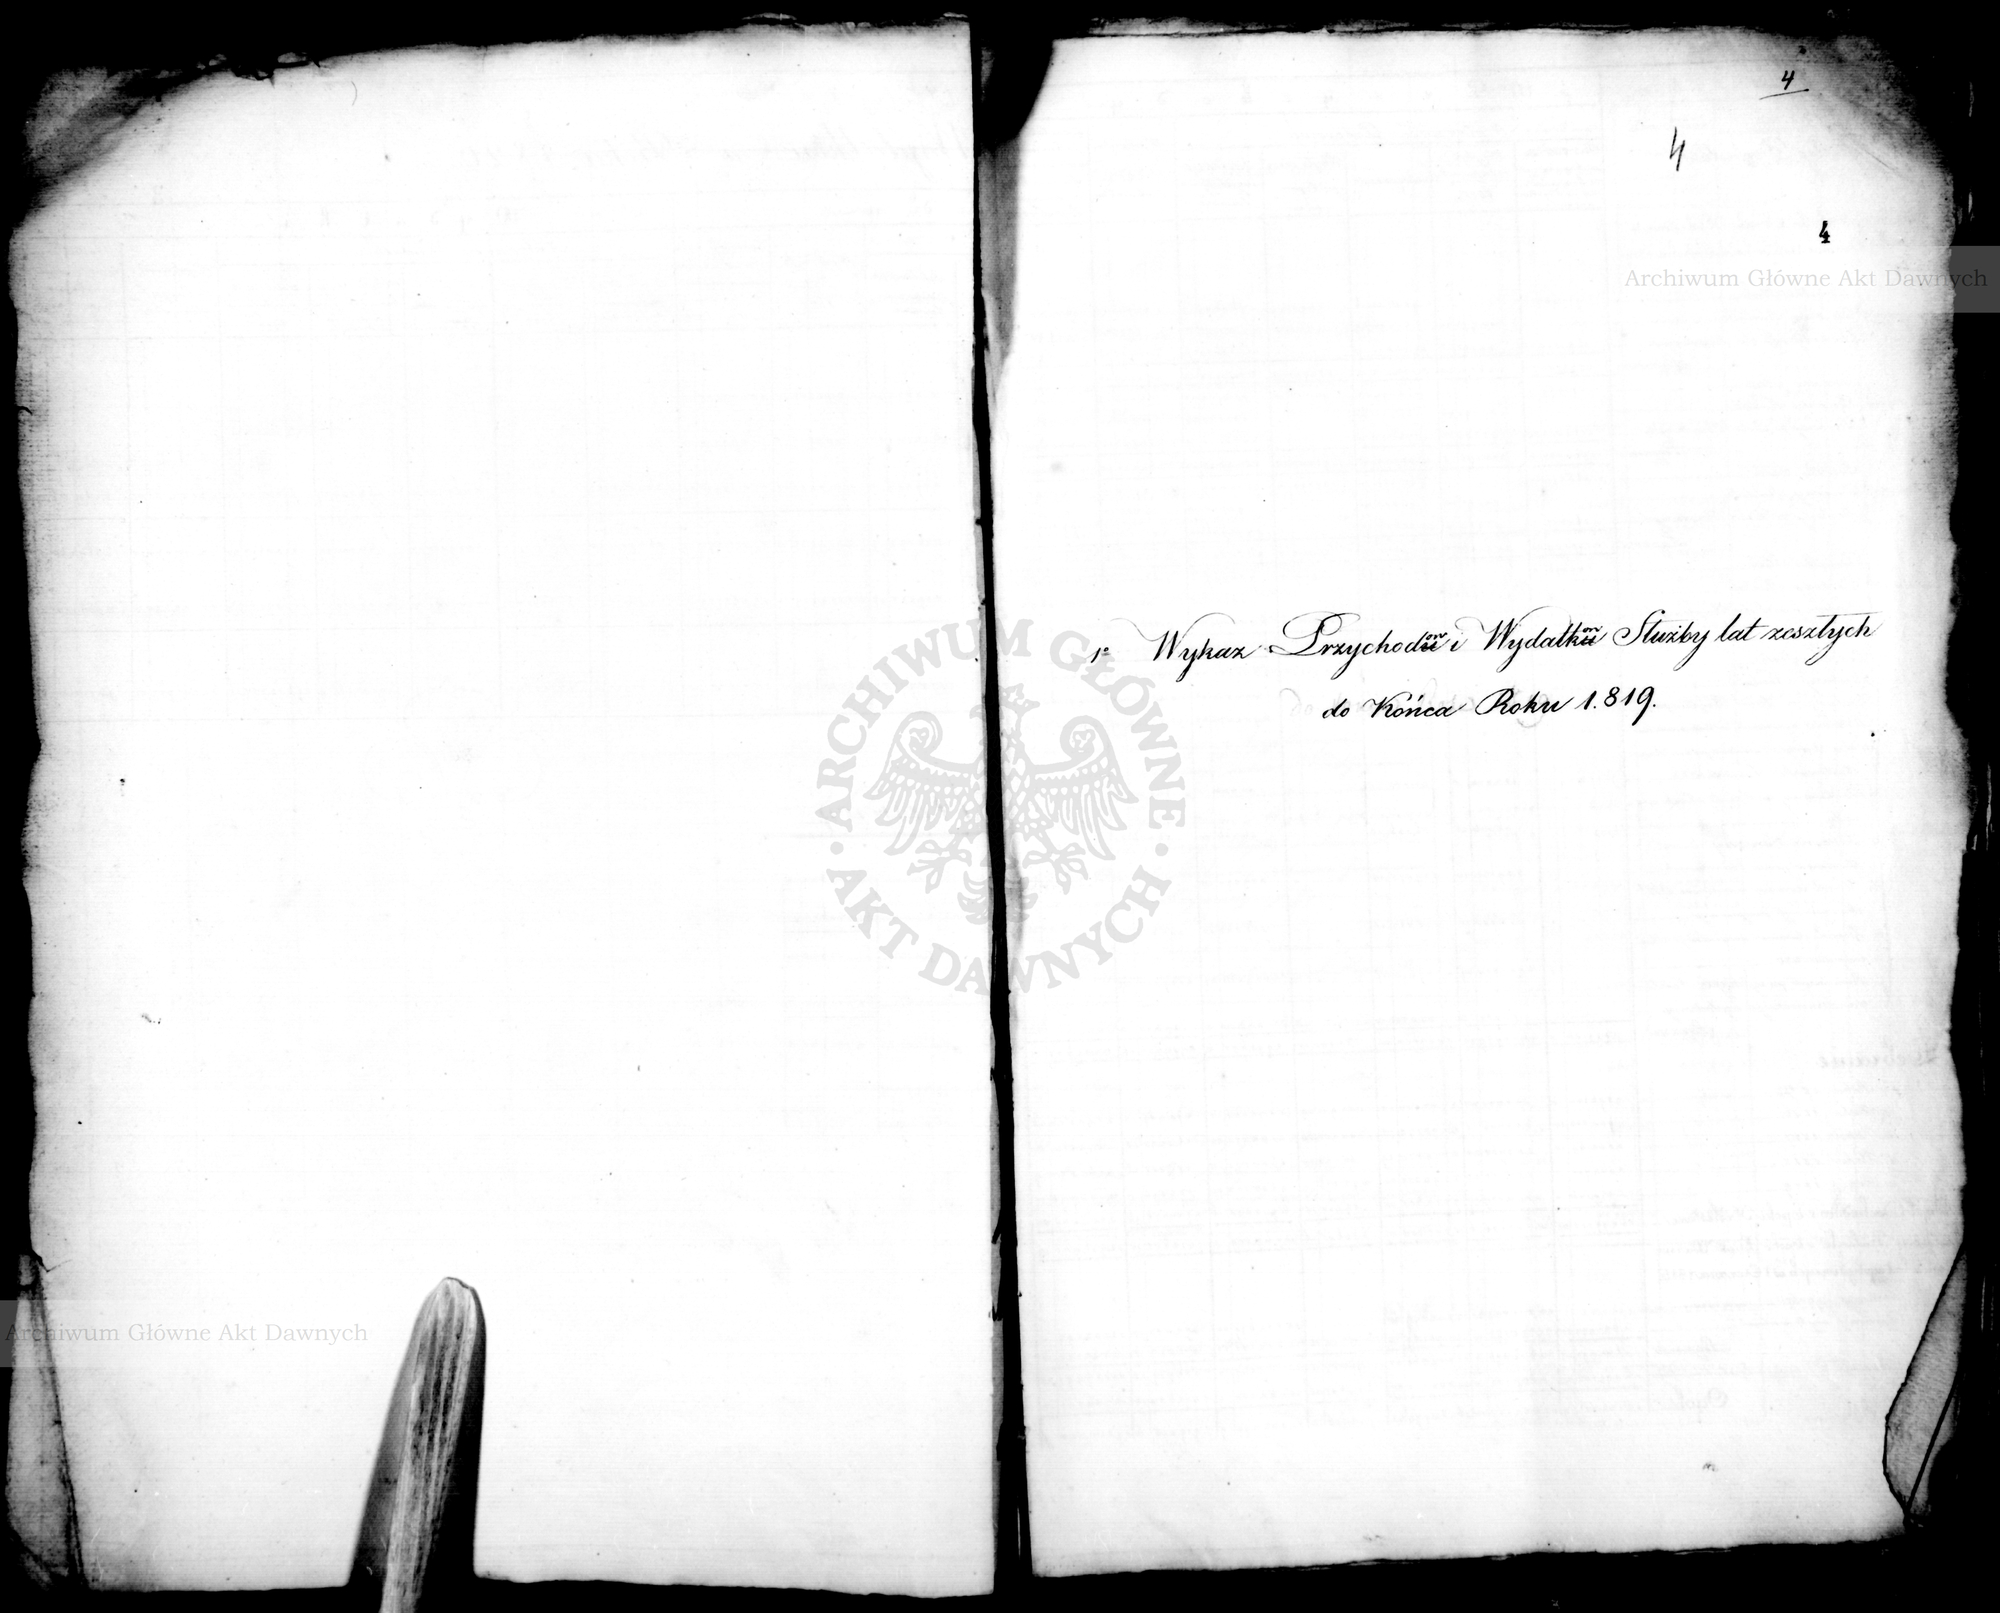 4
4
4
Archiwum Główne Akt Dawnych
1º Wykaz Przychodów i Wydatków Służby lat zeszłych
do Końca Roku 1.819.
ARCHIWUM GŁÓWNE
AKT DAWNYCH
Archiwum Główne Akt Dawnych